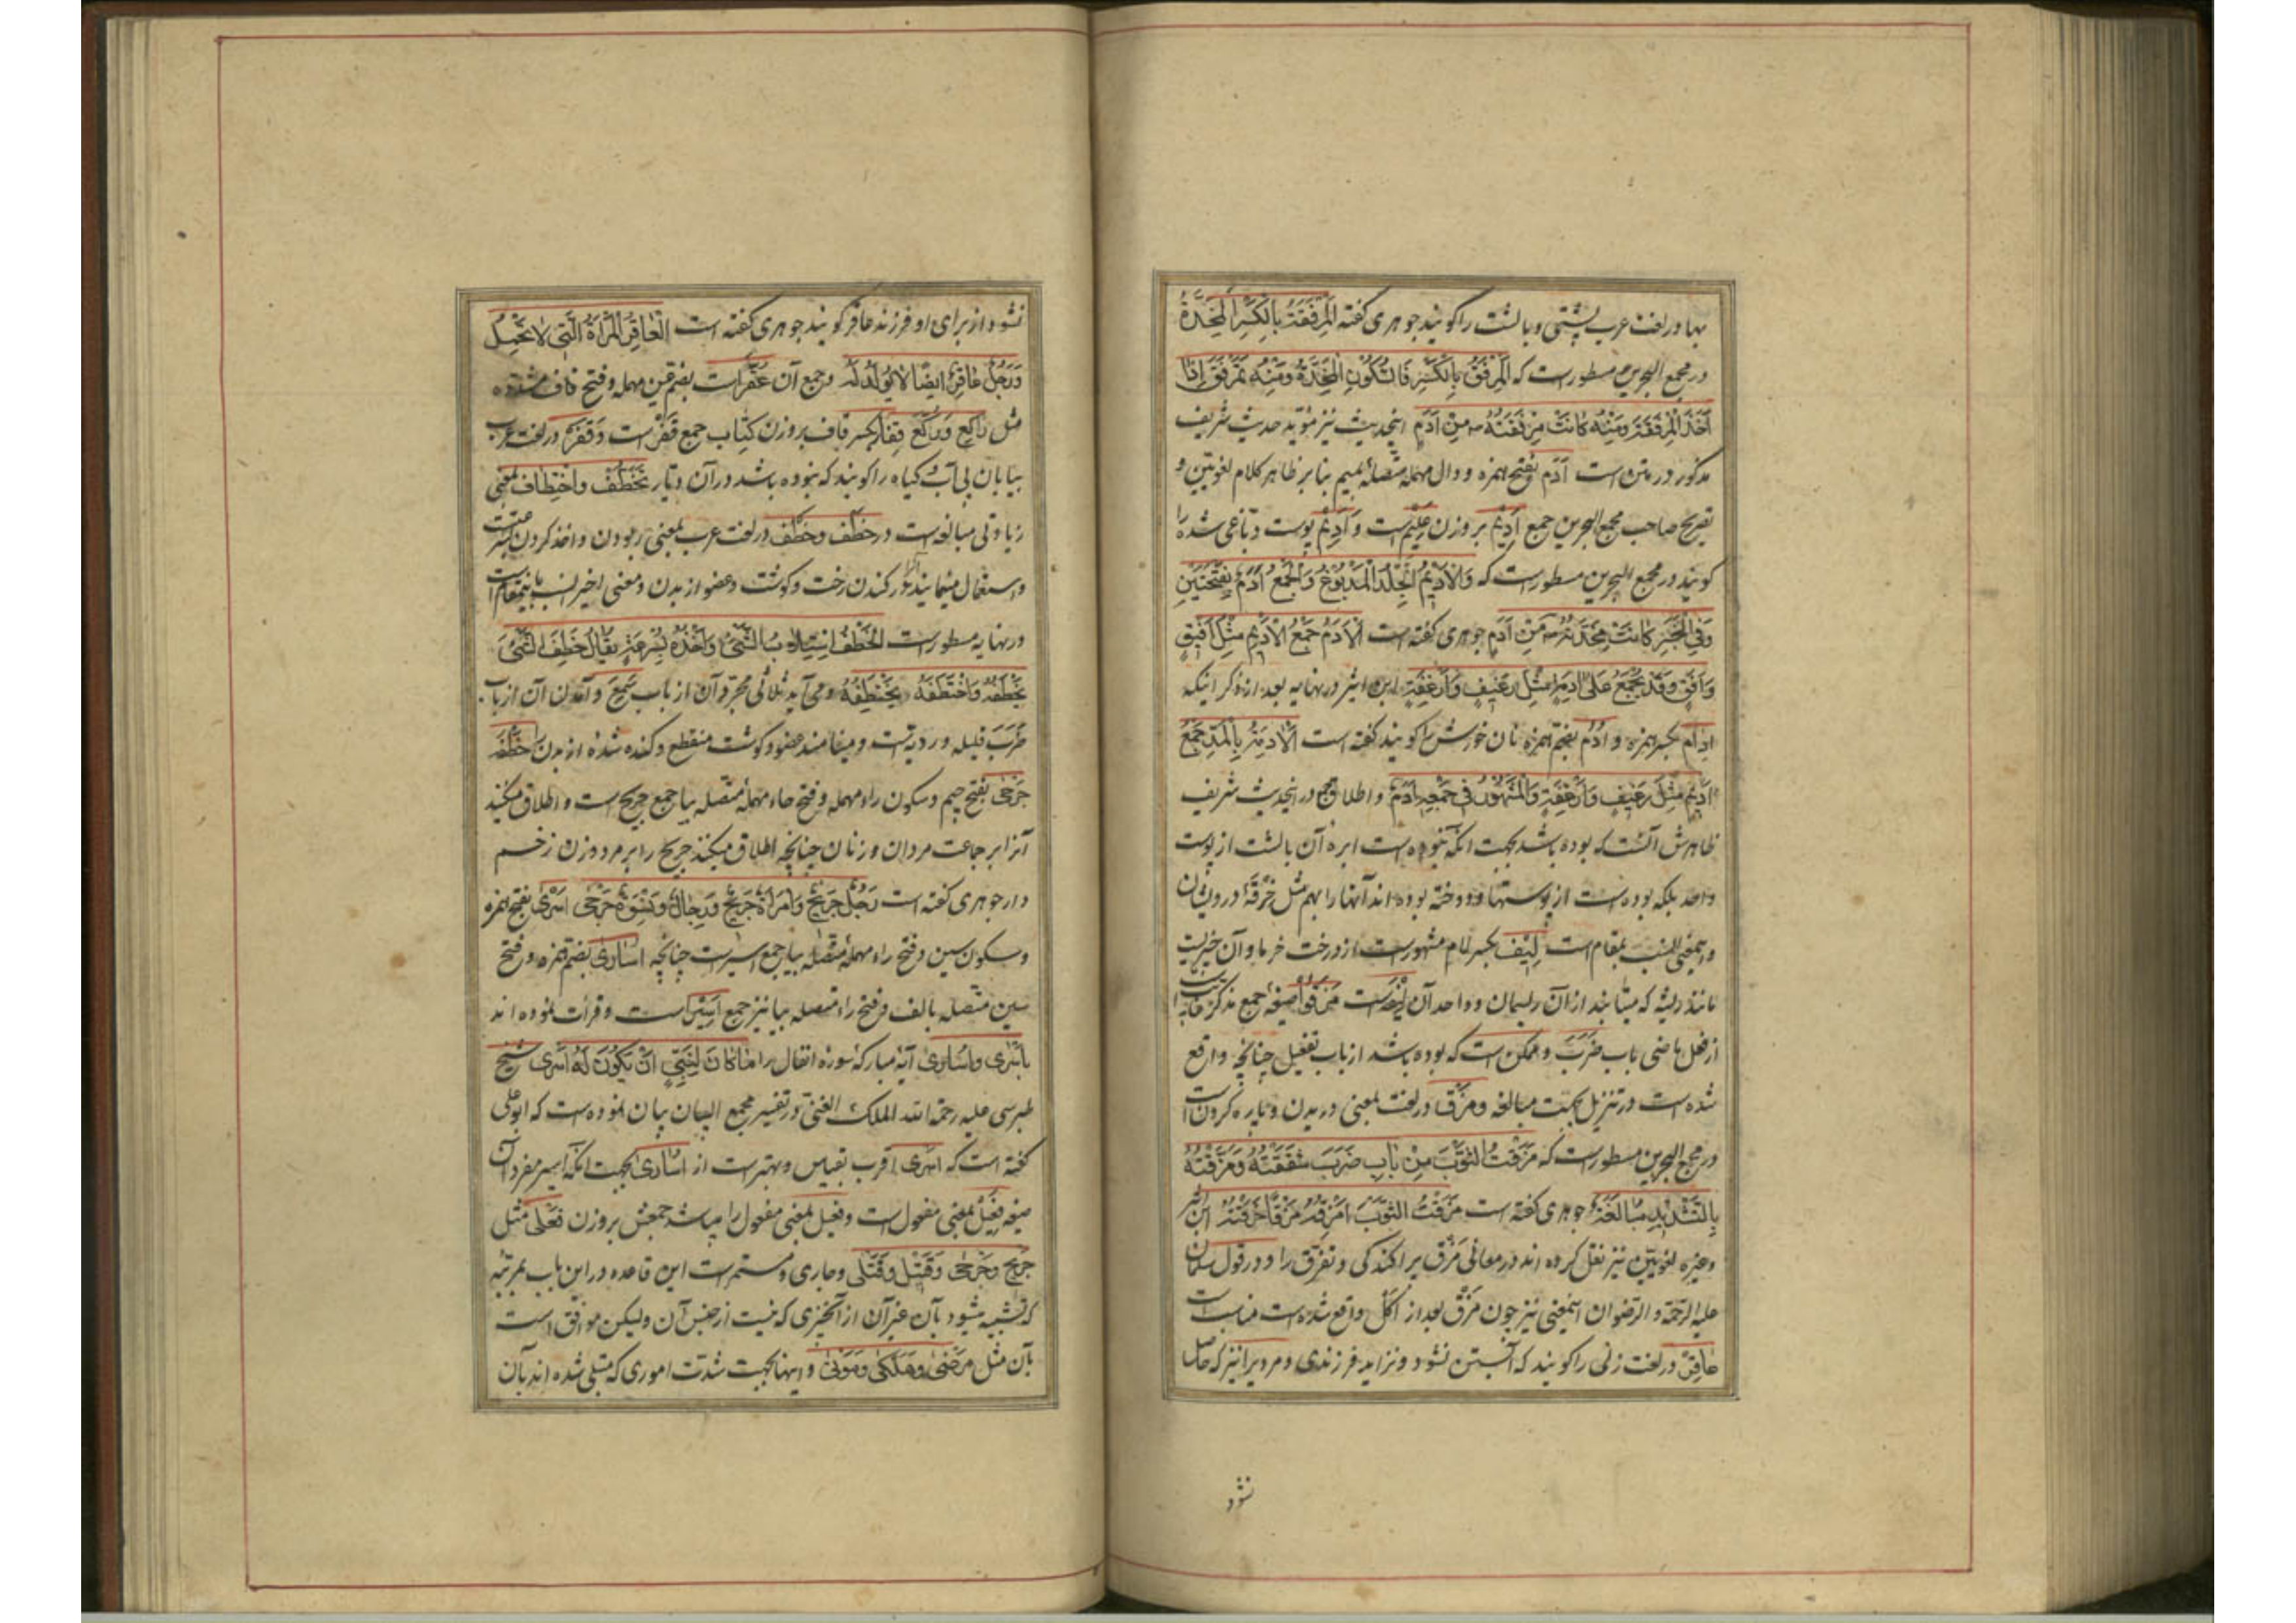 بها در لغت عرب پشتی و بالشت را گویند جوهری گفته الْمِرْفَقَةُ بِالْكَسْرِ الْمِخَدَّةُ
در مجمع البحرین مسطور است که الْمِرْفَقُ بِالْكَسْرِ تَكُونُ الْمِخَدَّةُ وَمِنْهُ تَمَرْفَقَ إِذَا
أَخَذَ الْمِرْفَقَةَ وَمِنْهُ كَانَتْ مِرْفَقَتُهُ مِنْ أَدَمٍ اینحدیث نیز مؤید حدیث شریف
مذکور در متن است اَدَم بفتح همزه و دال مهمله متصله بمیم بنا بر ظاهر کلام لغویین و
تصریح صاحب مجمع البحرین جمع اَدِیم بر وزن عَلِیم است و اَدِیم پوست دباغی شده را
گویند در مجمع البحرین مسطور است که وَالْأَدِيمُ الْجِلْدُ الْمَدْبُوغُ وَالْجَمْعُ أَدَمٌ بِفَتْحَتَيْنِ
وَفِي الْخَبَرِ كَانَتْ مِخَدَّتُهُ مِنْ أَدَمٍ جوهری گفته است الْأَدَمُ جَمْعُ الْأَدِيمِ مِثْلُ أَفِيقٍ
وَأَفَقٍ وَقَدْ يُجْمَعُ عَلَى آدِمَةٍ مِثْلُ رَغِيفٍ وَأَرْغِفَةٍ ابن اثیر در نهایه بعد از ذکر اینکه
اِدام بکسر همزه و اُدْم بضم همزه نان خورش را گویند گفته است الْآدِمَةُ بِالْمَدِّ جَمْعُ
أَدِيمٍ مِثْلُ رَغِيفٍ وَأَرْغِفَةٍ وَالْمَشْهُورُ فِي جَمْعِهِ أَدَمٌ و اطلاق جمع در اینحدیث شریف
ظاهرش آنست که بوده باشد بجهت آنکه نبوده است ابره آن بالشت از پوست
واحد بلکه بوده است از پوستها و دوخته بوده اند آنها را بهم مثل خرقهٔ درویشان
و اینمعنی انسب بمقام است لِیْف بکسر لام مشهور است از درخت خرما و آن چیزیست
مانند ریشه که میتابند از آن ریسمان و واحد آن لِیفَه است مَزَقُوا صیغه جمع مذکر غایب است
از فعل ماضی باب ضَرَبَ و ممکن است که بوده باشد از باب تفعیل چنانچه واقع
شده است در تنزیل بجهت مبالغه و مَزْق در لغت بمعنی دریدن و پاره کردن است
در مجمع البحرین مسطور است که مَزَقْتُ الثَّوْبَ مِنْ بَابِ ضَرَبَ شَقَقْتُهُ وَمَزَّقْتُهُ
بِالتَّشْدِيدِ مُبَالَغَةً جوهری گفته است مَزَقْتُ الثَّوْبَ أَمْزِقُهُ مَزْقًا خَرَقْتُهُ ابن اثیر
و غیره لغویین نیز نقل کرده اند در معانی مَزْق پراکندگی و تفرق را و در قول سلمان
علیه الرحمة و الرضوان اینمعنی نیز چون مَزْق بعد از اکل واقع شده است مناسب است
عاقِر در لغت زنی را گویند که آبستن نشود و نزاید فرزندی و مردیرا نیز که حاصل
نشود
نشود از برای او فرزند عاقر گویند جوهری گفته است الْعَاقِرُ الْمَرْأَةُ الَّتِي لَا تَحْبَلُ
وَرَجُلٌ عَاقِرٌ أَيْضًا لَا يُولَدُ لَهُ و جمع آن عُقَّر است بضم عین مهمله و فتح قاف مشدده
مثل راکع و رُکَّع قِفار بکسر قاف بر وزن کتاب جمع قَفْر است و قَفْرَه در لغت عرب
بیابان بی آب و گیاه را گویند که نبوده باشد در آن دیار تَخَطُّف و اختطاف بمعنی
زیادتی مبالغه است در خَطْف و خَطْف در لغت عرب بمعنی ربودن و اخذ کردن بسرعت است
و استعمال مینمایند آنرا در کندن رخت و گوشت و عضو از بدن و معنی اخیر انسب باینمقام است
در نهایه مسطور است الْخَطْفُ اسْتِلَابُ الشَّيْءِ وَأَخْذُهُ بِسُرْعَةٍ يُقَالُ خَطِفَ الشَّيْءَ
يَخْطَفُهُ وَاخْتَطَفَهُ يَخْتَطِفُهُ و می آید ثلاثی مجرد آن از باب سَمِعَ و آمدن آن از باب
ضَرَبَ قلیله و ردیه است و مینامند عضو و گوشت منقطع و کنده شده از بدن را خَطْفَه
جَرْحی بفتح جیم و سکون راء مهمله و فتح حاء مهمله متصله بیا جمع جریح است و اطلاق میکنند
آنرا بر جماعت مردان و زنان چنانچه اطلاق میکنند جریح را بر مرد و زن زخم
دار جوهری گفته است رَجُلٌ جَرِيحٌ وَامْرَأَةٌ جَرِيحٌ وَرِجَالٌ وَنِسْوَةٌ جَرْحَى اَسْری بفتح همزه
و سکون سین و فتح راء مهمله متصله بیا جمع اسیر است چنانچه اُساری بضم همزه و فتح
سین متصله بالف و فتح راء متصله بیا نیز جمع اَسِیر است و قرائت نموده اند
باَسْری و اُساری آیه مبارکه سوره انفال را مَا كَانَ لِنَبِيٍّ أَنْ يَكُونَ لَهُ أَسْرَى شیخ
طبرسی علیه رحمة الله الملک الغنی در تفسیر مجمع البیان بیان نموده است که ابو علی
گفته است که اَسْری اقرب بقیاس و بهتر است از اُساری بجهت آنکه اسیر مفرد آن
صیغه فَعِیل بمعنی مفعول است و فعیل بمعنی مفعول را میباشد جمعش بر وزن فَعْلی مثل
جریح و جَرْحی و قتیل و قَتْلی و جاری و مستمر است این قاعده در این باب بمرتبه
که تشبیه میشود بآن غیر آن از آنچیزی که نیست از جنس آن ولیکن موافق است
بآن مثل مَرْضی و هَلْکی و مَوْتی و اینها بجهت شدت اموری که مبتلی شده اند بآن